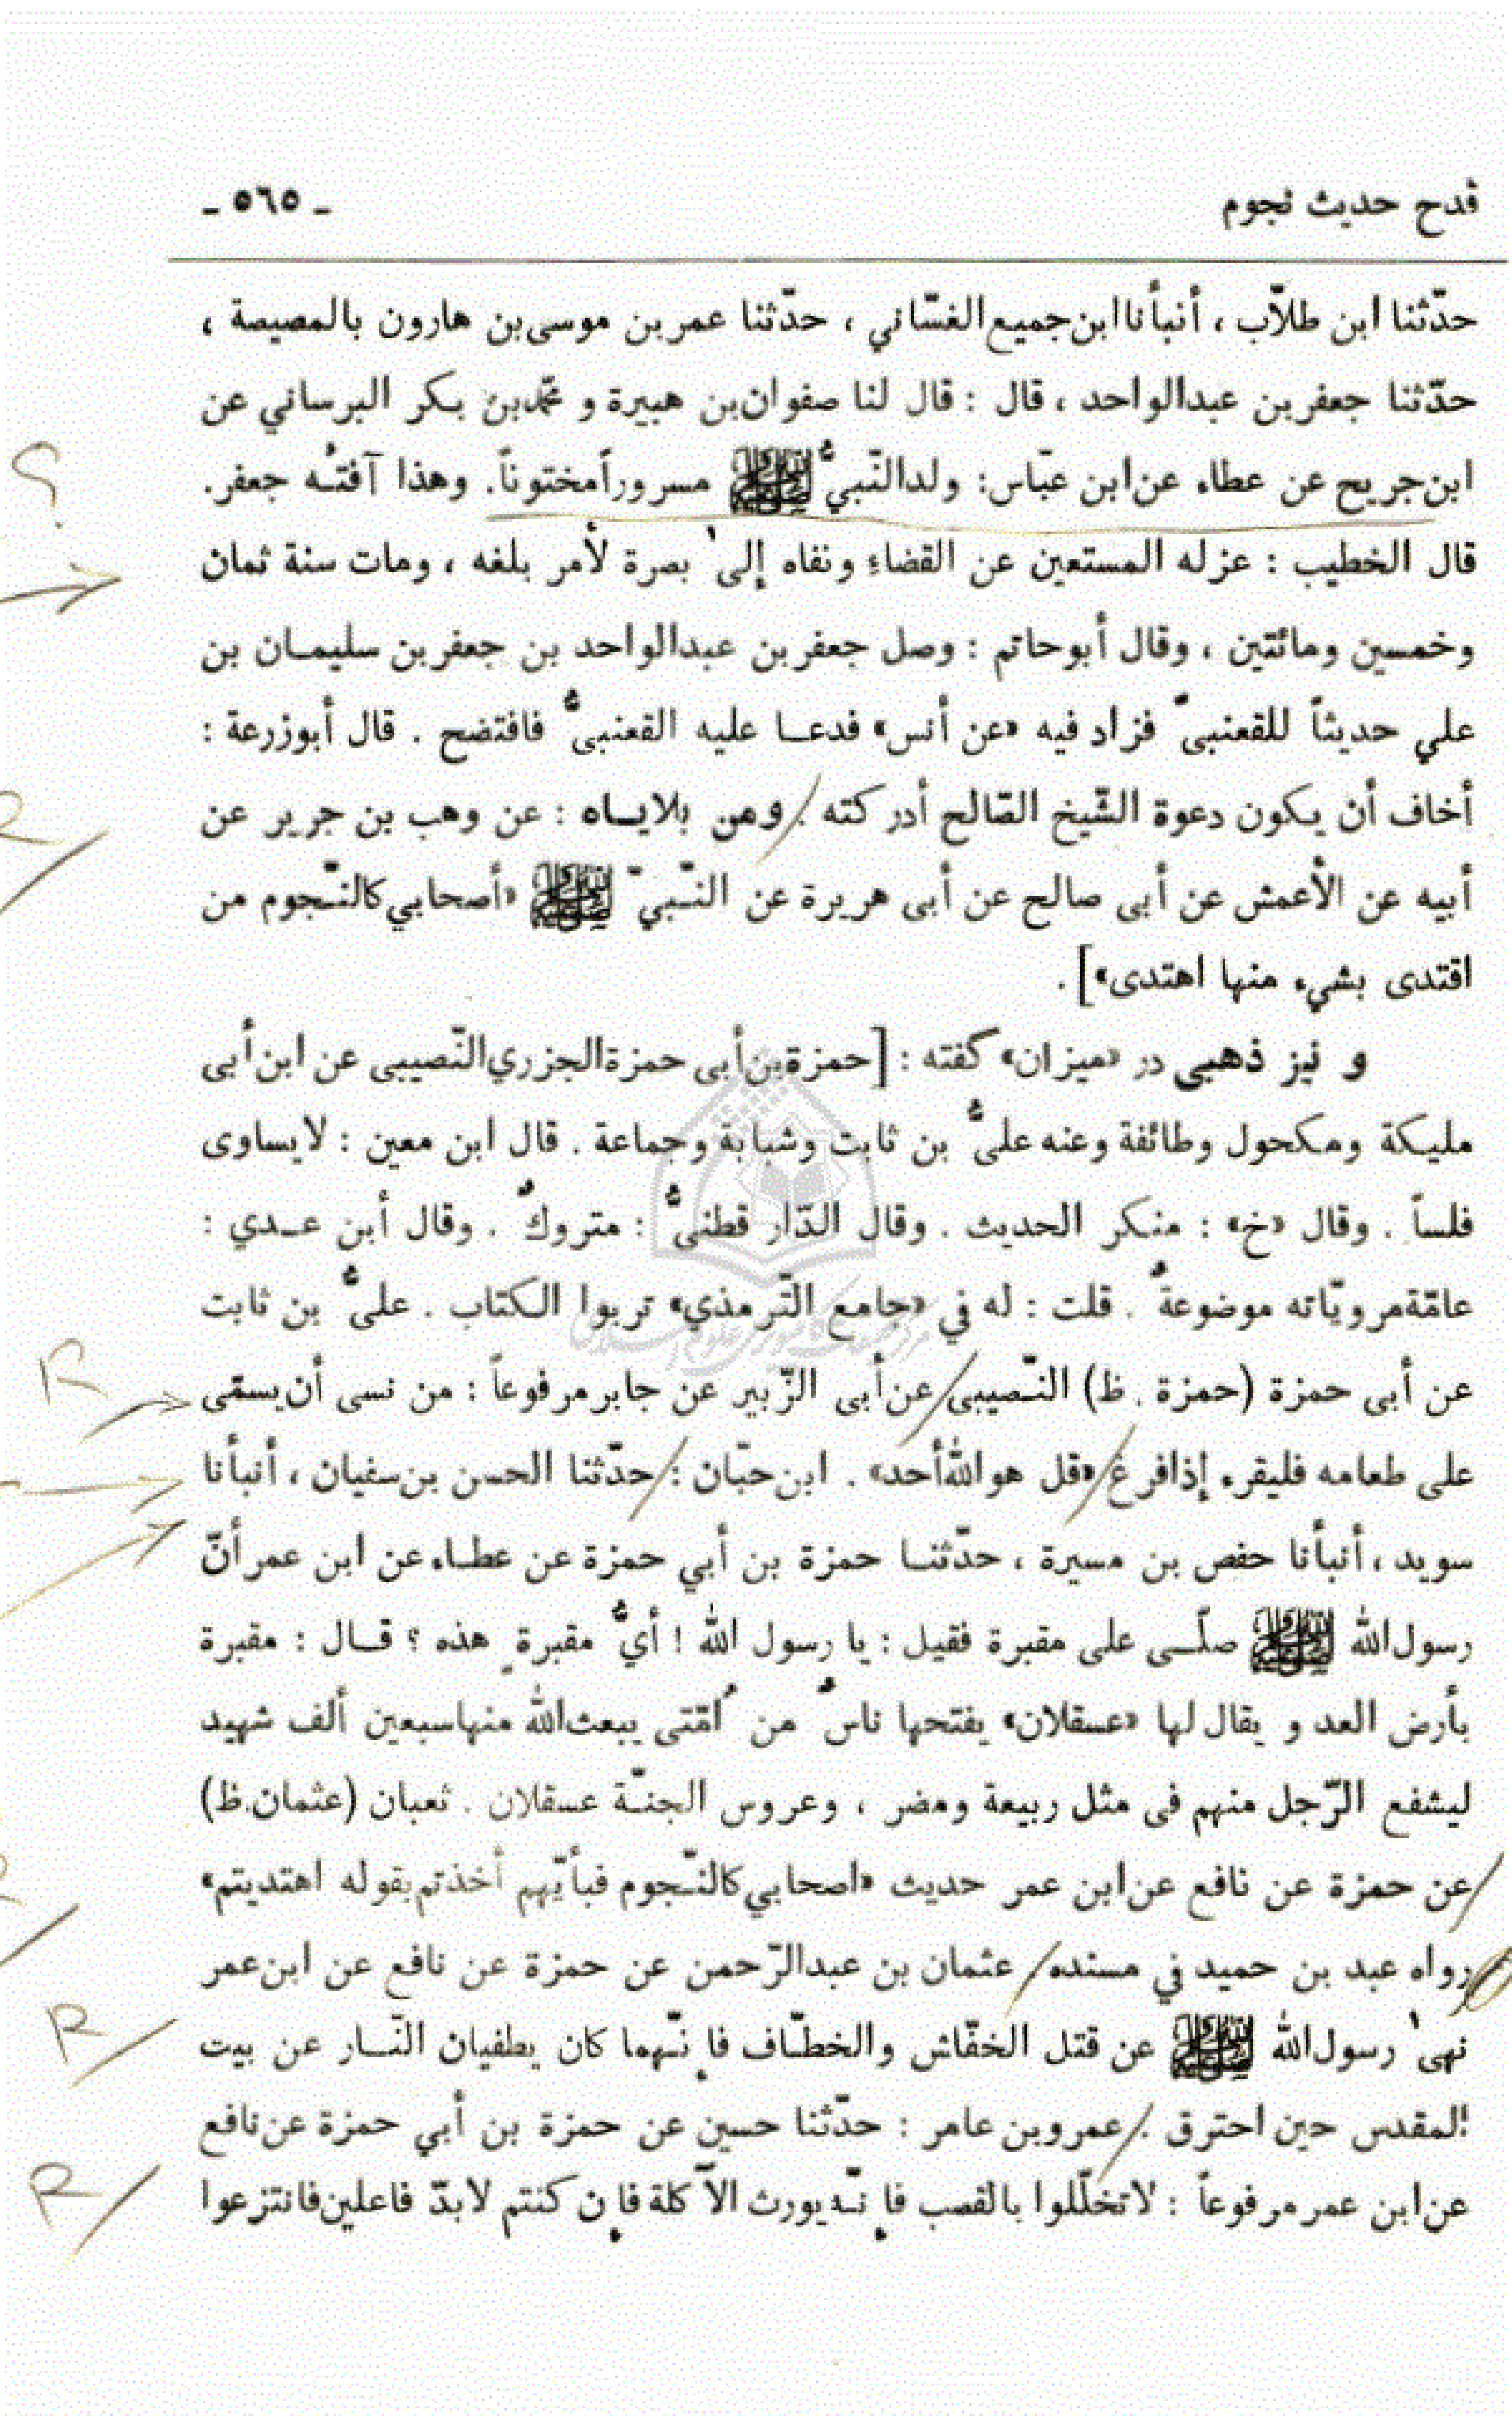 قدح حديث نجوم
ـ ٥٦٥ ـ
حدّثنا ابن طلاّب ، أنبأنا ابن جميع الغسّاني ، حدّثنا عمر بن موسى بن هارون بالمصيصة ،
حدّثنا جعفر بن عبدالواحد ، قال : قال لنا صفوان بن هبيرة و محمّد بن بكر البرساني عن
ابن جريح عن عطاء عن ابن عبّاس : ولد النّبيُّ ﷺ مسروراً مختوناً. وهذا آفتـه جعفر.
قال الخطيب : عزله المستعين عن القضاءِ ونفاه إلى بصرة لأمر بلغه ، ومات سنة ثمان
وخمسين ومائتين ، وقال أبوحاتم : وصل جعفر بن عبدالواحد بن جعفر بن سليمـان بن
علي حديثاً للقعنبىّ فزاد فيه «عن أنس» فدعـا عليه القعنبىُّ فافتضح . قال أبوزرعة :
أخاف أن يكون دعوة الشّيخ الصّالح أدركته . ومن بلايـاه : عن وهب بن جرير عن
أبيه عن الأعمش عن أبى صالح عن أبى هريرة عن النّـبيّ ﷺ «أصحابي كالنّـجوم من
اقتدى بشيء منها اهتدى»] .
و نيز ذهبى در «ميزان» كفته : [حمزة بن أبى حمزة الجزري النّصيبى عن ابن أبى
مليكة ومكحول وطائفة وعنه علىُّ بن ثابت وشبابة وجماعة . قال ابن معين : لايساوى
فلساً . وقال «خ» : منكر الحديث . وقال الدّار قطنىُّ : متروكٌ . وقال أبن عـدي :
عامّة مرويّاته موضوعةٌ . قلت : له في «جامع التّرمذي» تربوا الكتاب . علىُّ بن ثابت
عن أبى حمزة (حمزة . ظ) النّـصيبى عن أبى الزّبير عن جابر مرفوعاً : من نسى أن يسمّى
على طعامه فليقرء إذا فرغ «قل هو الله أحد» . ابن حبّان : حدّثنا الحسن بن سفيان ، أنبأنا
سويد ، أنبأنا حفص بن مسيرة ، حدّثنـا حمزة بن أبي حمزة عن عطـاء عن ابن عمر أنّ
رسول الله ﷺ صلّـى على مقبرة فقيل : يا رسول الله ! أيُّ مقبرةٍ هذه ؟ قـال : مقبرة
بأرض العد و يقال لها «عسقلان» يفتحها ناسٌ من اُمّتى يبعث الله منها سبعين ألف شهيد
ليشفع الرّجل منهم فى مثل ربيعة ومضر ، وعروس الجنّـة عسقلان . ثعبان (عثمان.ظ)
عن حمزة عن نافع عن ابن عمر حديث «اصحابي كالنّـجوم فبأيّهم أخذتم بقوله اهتديتم»
رواه عبد بن حميد في مسنده عثمان بن عبدالرّحمن عن حمزة عن نافع عن ابن عمر
نهى رسول الله ﷺ عن قتل الخفّاش والخطّـاف فإنّـهما كان يطفيان النّـار عن بيت
المقدس حين احترق . عمرو بن عامر : حدّثنا حسين عن حمزة بن أبي حمزة عن نافع
عن ابن عمر مرفوعاً : لا تخلّلوا بالقصب فإنّـه يورث الآكلة فإن كنتم لابدّ فاعلين فانتزعوا
؟
R
R
R
R